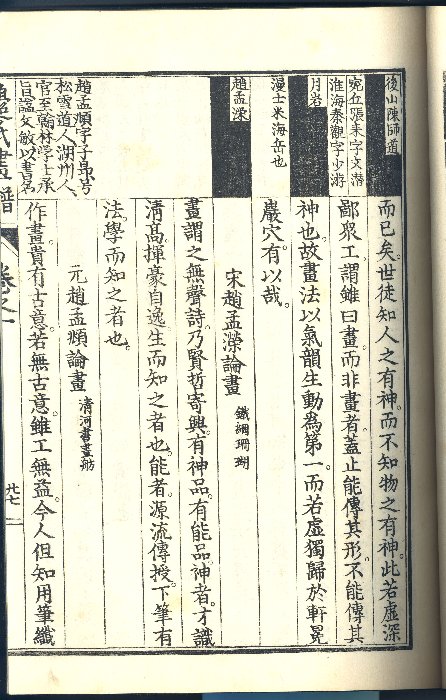 後山陳師道
宛丘張耒字文潜
淮海秦觀字少游
月岩
漫士米海岳也
趙孟濚
趙孟頫字子昻号
松雪道人湖州人
官至翰林学士承
旨謚文敏以書名
而已矣。世徒知人之有神。而不知物之有神。此若虛深
鄙衆工。謂雖曰畫。而非畫者。蓋止能傳其形。不能傳其
神也。故畫法以氣韻生動為第一。而若虛獨歸於軒冕
巖穴。有以哉。
宋趙孟濚論畫 鐵網珊瑚
畫謂之無聲詩。乃賢哲寄興。有神品。有能品。神者。才識
清高。揮豪自逸。生而知之者也。能者。源流傳授。下筆有
法。學而知之者也。
元趙孟頫論畫 清河書畫舫
作畫貴有古意。若無古意。雖工無益。今人但知用筆纖
氏畫譜
卷之一
九七